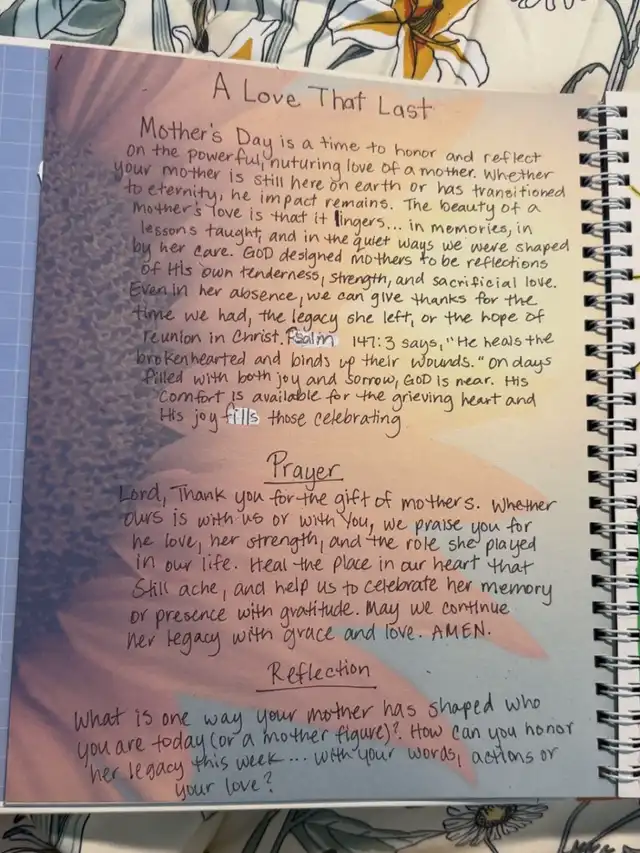 A Love That Last
Mother's Day is a time to honor and reflect
on the powerful, nuturing love of a mother. Whether
your mother is still here on earth or has transitioned
to eternity, he impact remains. The beauty of a
mother's love is that it lingers... in memories, in
lessons taught, and in the quiet ways we were shaped
by her care. GOD designed mothers to be reflections
of His own tenderness, strength, and sacrificial love.
Even in her absence, we can give thanks for the
time we had, the legacy she left, or the hope of
reunion in Christ. Psalm 147:3 says, "He heals the
brokenhearted and binds up their wounds." On days
filled with both joy and sorrow, GOD is near. His
comfort is available for the grieving heart and
His joy fills those celebrating
Prayer
Lord, Thank you for the gift of mothers. Whether
ours is with us or with You, we praise you for
he love, her strength, and the role she played
in our life. Heal the place in our heart that
Still ache, and help us to celebrate her memory
or presence with gratitude. May we continue
her legacy with grace and love. AMEN.
Reflection
What is one way your mother has shaped who
you are today (or a mother figure)? How can you honor
her legacy this week... with your words, actions or
your love?